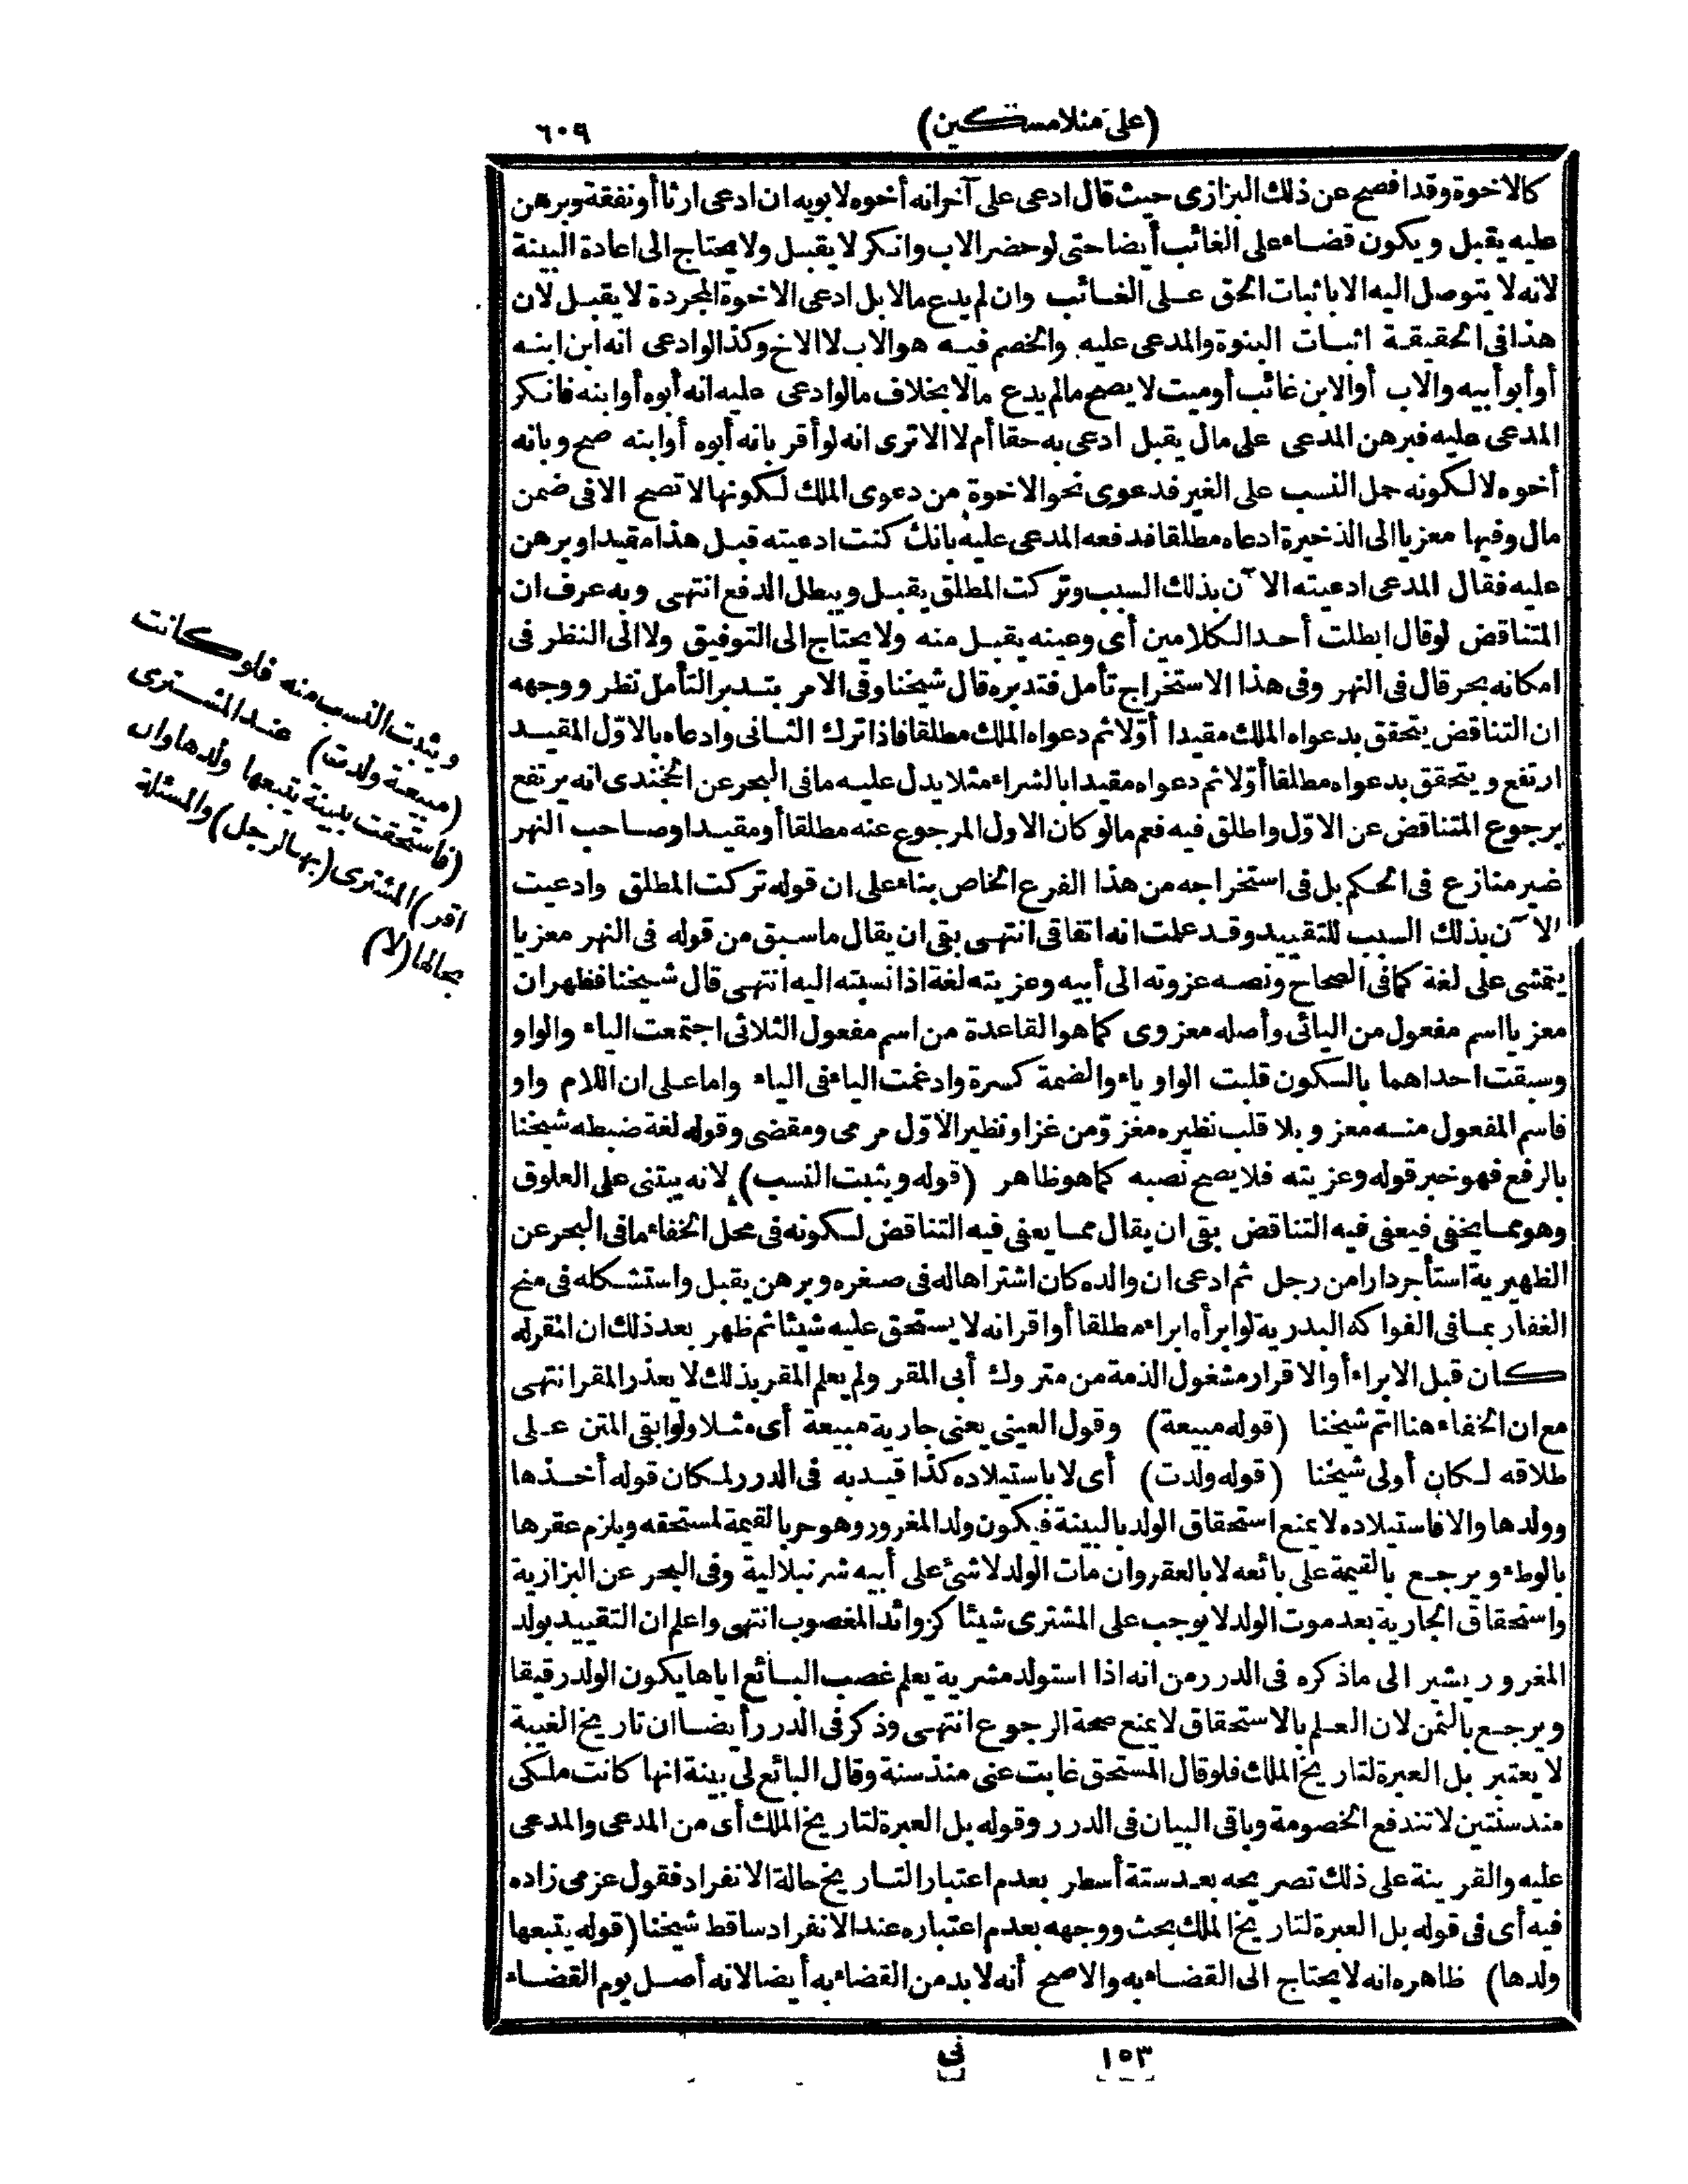 (على منلا مسكين) ٦٠٩
كالاخوة وقد افصح عن ذلك البزازى حيث قال ادعى على آخر انه أخوه لابويه ان ادعى ارثا أو نفقة وبرهن
عليه يقبل ويكون قضاء على الغائب أيضا حتى لو حضر الاب وانكر لا يقبل ولا يحتاج الى اعادة البينة
لانه لا يتوصل اليه الا باثبات الحق على الغائب وان لم يدع مالا بل ادعى الاخوة المجردة لا يقبل لان
هذا فى الحقيقة اثبات البنوة والمدعى عليه والخصم فيه هو الاب لا الاخ وكذا لو ادعى انه ابن ابنه
أو أبو أبيه والاب أو الابن غائب أو ميت لا يصح مالم يدع مالا بخلاف مالو ادعى عليه انه أبوه أو ابنه فانكر
المدعى عليه فبرهن المدعى على مال يقبل ادعى به حقا أم لا الا ترى انه لو أقر بانه أبوه أو ابنه صح وبانه
أخوه لا لكونه حمل النسب على الغير فدعوى نحو الاخوة من دعوى الملك لكونها لا تصح الا فى ضمن
مال وفيها معزيا الى الذخيرة ادعاه مطلقا فدفعه المدعى عليه بانك كنت ادعيته قبل هذا مقيدا وبرهن
عليه فقال المدعى ادعيته الآن بذلك السبب وتركت المطلق يقبل ويبطل الدفع انتهى وبه عرف ان
المتناقض لو قال ابطلت أحد الكلامين أى وعينه يقبل منه ولا يحتاج الى التوفيق ولا الى النظر فى
امكانه بحر قال فى النهر وفى هذا الاستخراج تأمل فتدبره قال شيخنا وفى الامر بتدبر التأمل نظر ووجهه
ان التناقض يتحقق بدعواه الملك مقيدا أوّلا ثم دعواه الملك مطلقا فاذا ترك الثانى وادعاه بالاوّل المقيد
ارتفع ويتحقق بدعواه مطلقا أوّلا ثم دعواه مقيدا بالشراء مثلا يدل عليه مافى البحر عن الخجندى انه يرتفع
برجوع المتناقض عن الاوّل واطلق فيه فعم مالو كان الاول المرجوع عنه مطلقا أو مقيدا وصاحب النهر
غير منازع فى الحكم بل فى استخراجه من هذا الفرع الخاص بناء على ان قوله تركت المطلق وادعيت
الآن بذلك السبب للتقييد وقد علمت انه اتفاقى انتهى بقى ان يقال ما سبق من قوله فى النهر معزيا
يتمشى على لغة كما فى الصحاح ونصه عزوته الى أبيه وعزيته لغة اذا نسبته اليه انتهى قال شيخنا فظهر ان
معزيا اسم مفعول من اليائى وأصله معزوى كما هو القاعدة من اسم مفعول الثلاثى اجتمعت الياء والواو
وسبقت احداهما بالسكون قلبت الواو ياء والضمة كسرة وادغمت الياء فى الياء واما على ان اللام واو
فاسم المفعول منه معزو بلا قلب نظيره مغزوّ من غزا ونظير الاوّل مرمى ومقضى وقوله لغة ضبطه شيخنا
بالرفع فهو خبر قوله وعزيته فلا يصح نصبه كما هو ظاهر (قوله ويثبت النسب) لانه يبتنى على العلوق
وهو مما يخفى فيعفى فيه التناقض بقى ان يقال مما يعفى فيه التناقض لكونه فى محل الخفاء ما فى البحر عن
الظهيرية استأجر دارا من رجل ثم ادعى ان والده كان اشتراها له فى صغره وبرهن يقبل واستشكله فى منح
الغفار بما فى الفواكه البدرية لو ابرأه ابراء مطلقا أو اقر انه لا يستحق عليه شيئا ثم ظهر بعد ذلك ان المقر له
كان قبل الابراء أو الاقرار مشغول الذمة من متروك أبى المقر ولم يعلم المقر بذلك لا يعذر المقر انتهى
مع ان الخفاء هنا اتم شيخنا (قوله مبيعة) وقول العينى يعنى جارية مبيعة أى مثلا ولو ابقى المتن على
طلاقه لكان أولى شيخنا (قوله ولدت) أى لا باستيلاده كذا قيد به فى الدرر لمكان قوله أخذها
وولدها والا فاستيلاده لا يمنع استحقاق الولد بالبينة فيكون ولد المغرور وهو حر بالقيمة لمستحقه ويلزم عقرها
بالوطء ويرجع بالقيمة على بائعه لا بالعقر وان مات الولد لا شئ على أبيه شرنبلالية وفى البحر عن البزازية
واستحقاق الجارية بعد موت الولد لا يوجب على المشترى شيئا كزوائد المغصوب انتهى واعلم ان التقييد بولد
المغرور يشير الى ما ذكره فى الدرر من انه اذا استولد مشرية يعلم غصب البائع اياها يكون الولد رقيقا
ويرجع بالثمن لان العلم بالاستحقاق لا يمنع صحة الرجوع انتهى وذكر فى الدرر أيضا ان تاريخ الغيبة
لا يعتبر بل العبرة لتاريخ الملك فلو قال المستحق غابت عنى منذ سنة وقال البائع لى بينة انها كانت ملكى
منذ سنتين لا تندفع الخصومة وباقى البيان فى الدرر وقوله بل العبرة لتاريخ الملك أى من المدعى والمدعى
عليه والقرينة على ذلك تصريحه بعد ستة أسطر بعدم اعتبار التاريخ حالة الانفراد فقول عزمى زاده
فيه أى فى قوله بل العبرة لتاريخ الملك بحث ووجهه بعدم اعتباره عند الانفراد ساقط شيخنا (قوله يتبعها
ولدها) ظاهره انه لا يحتاج الى القضاء به والاصح أنه لا بد من القضاء به أيضا لانه أصل يوم القضاء
ويثبت النسب منه فلو كانت
(مبيعة ولدت) عند المشترى
(فاستحقت ببينة يتبعها ولدها وان
اقر) المشترى (بها لرجل) والمسئلة
بحالها (لا)
١٥٣ نى